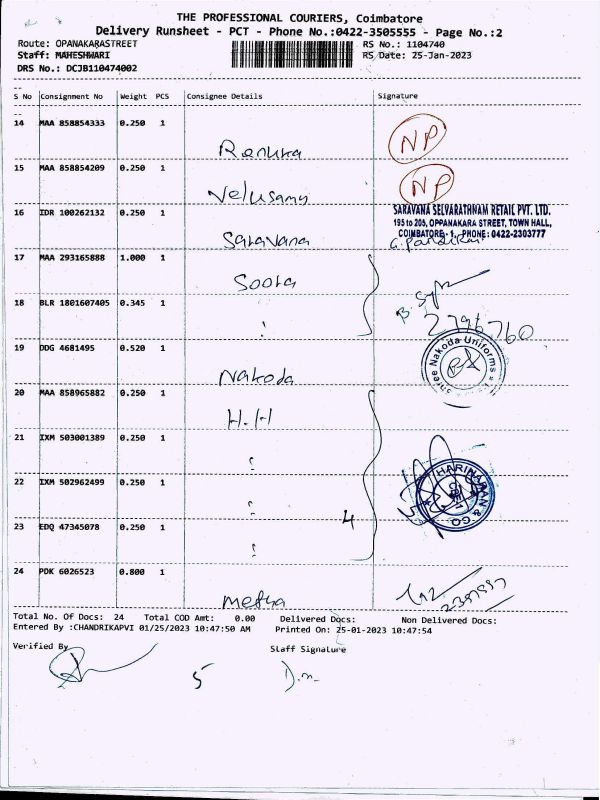 THE PROFESSIONAL COURIERS, Coimbatore
Delivery Runsheet - PCT - Phone No.:0422-3505555 - Page No.:2
Route: OPANAKARASTREET RS No.: 1104740
Staff: MAHESHWARI RS Date: 25-Jan-2023
DRS No.: DCJB110474002
S No Consignment No Weight PCS Consignee Details Signature
14 MAA 858854333 0.250 1 Renuka NP
15 MAA 858854209 0.250 1 Velusamy NP
16 IDR 100262132 0.250 1 Saravana
SARAVANA SELVARATHNAM RETAIL PVT. LTD.
195 to 205, OPPANAKARA STREET, TOWN HALL,
COIMBATORE- 1. PHONE: 0422-2303777
17 MAA 293165888 1.000 1
18 BLR 1801607405 0.345 1
2796760
19 DDG 4681495 0.520 1 Nakoda
Shree Nakoda Uniforms
20 MAA 858965882 0.250 1 H.H
21 IXM 503001389 0.250 1
22 IXM 502962499 0.250 1
HARINARAN & CO
4
23 EDQ 47345078 0.250 1
24 PDK 6026523 0.800 1 Metha
Total No. Of Docs: 24 Total COD Amt: 0.00 Delivered Docs: Non Delivered Docs:
Entered By :CHANDRIKAPVI 01/25/2023 10:47:50 AM Printed On: 25-01-2023 10:47:54
Verified By Staff Signature
5